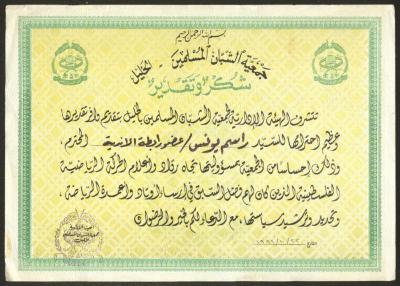 بسم الله الرحمن الرحيم
جمعية الشبان المسلمين - الخليل
شكر وتقدير
تتشرف الهيئة الادارية لجمعية الشبان المسلمين بالخليل بتقديم وافر تقديرها
وعظيم احترامها للسيد راسم يونس / عضو رابطة الاندية المحترم،
وذلك إحساسا من الجمعية بمسؤوليتها تجاه رواد وأعلام الحركة الرياضية
الفلسطينية الذين كان لهم فضل السابق في إرساء أوتاد وأعمدة الرياضة،
وتحديد وترشيد سياستها، مع التمنيات لكم بالخير والرضوان